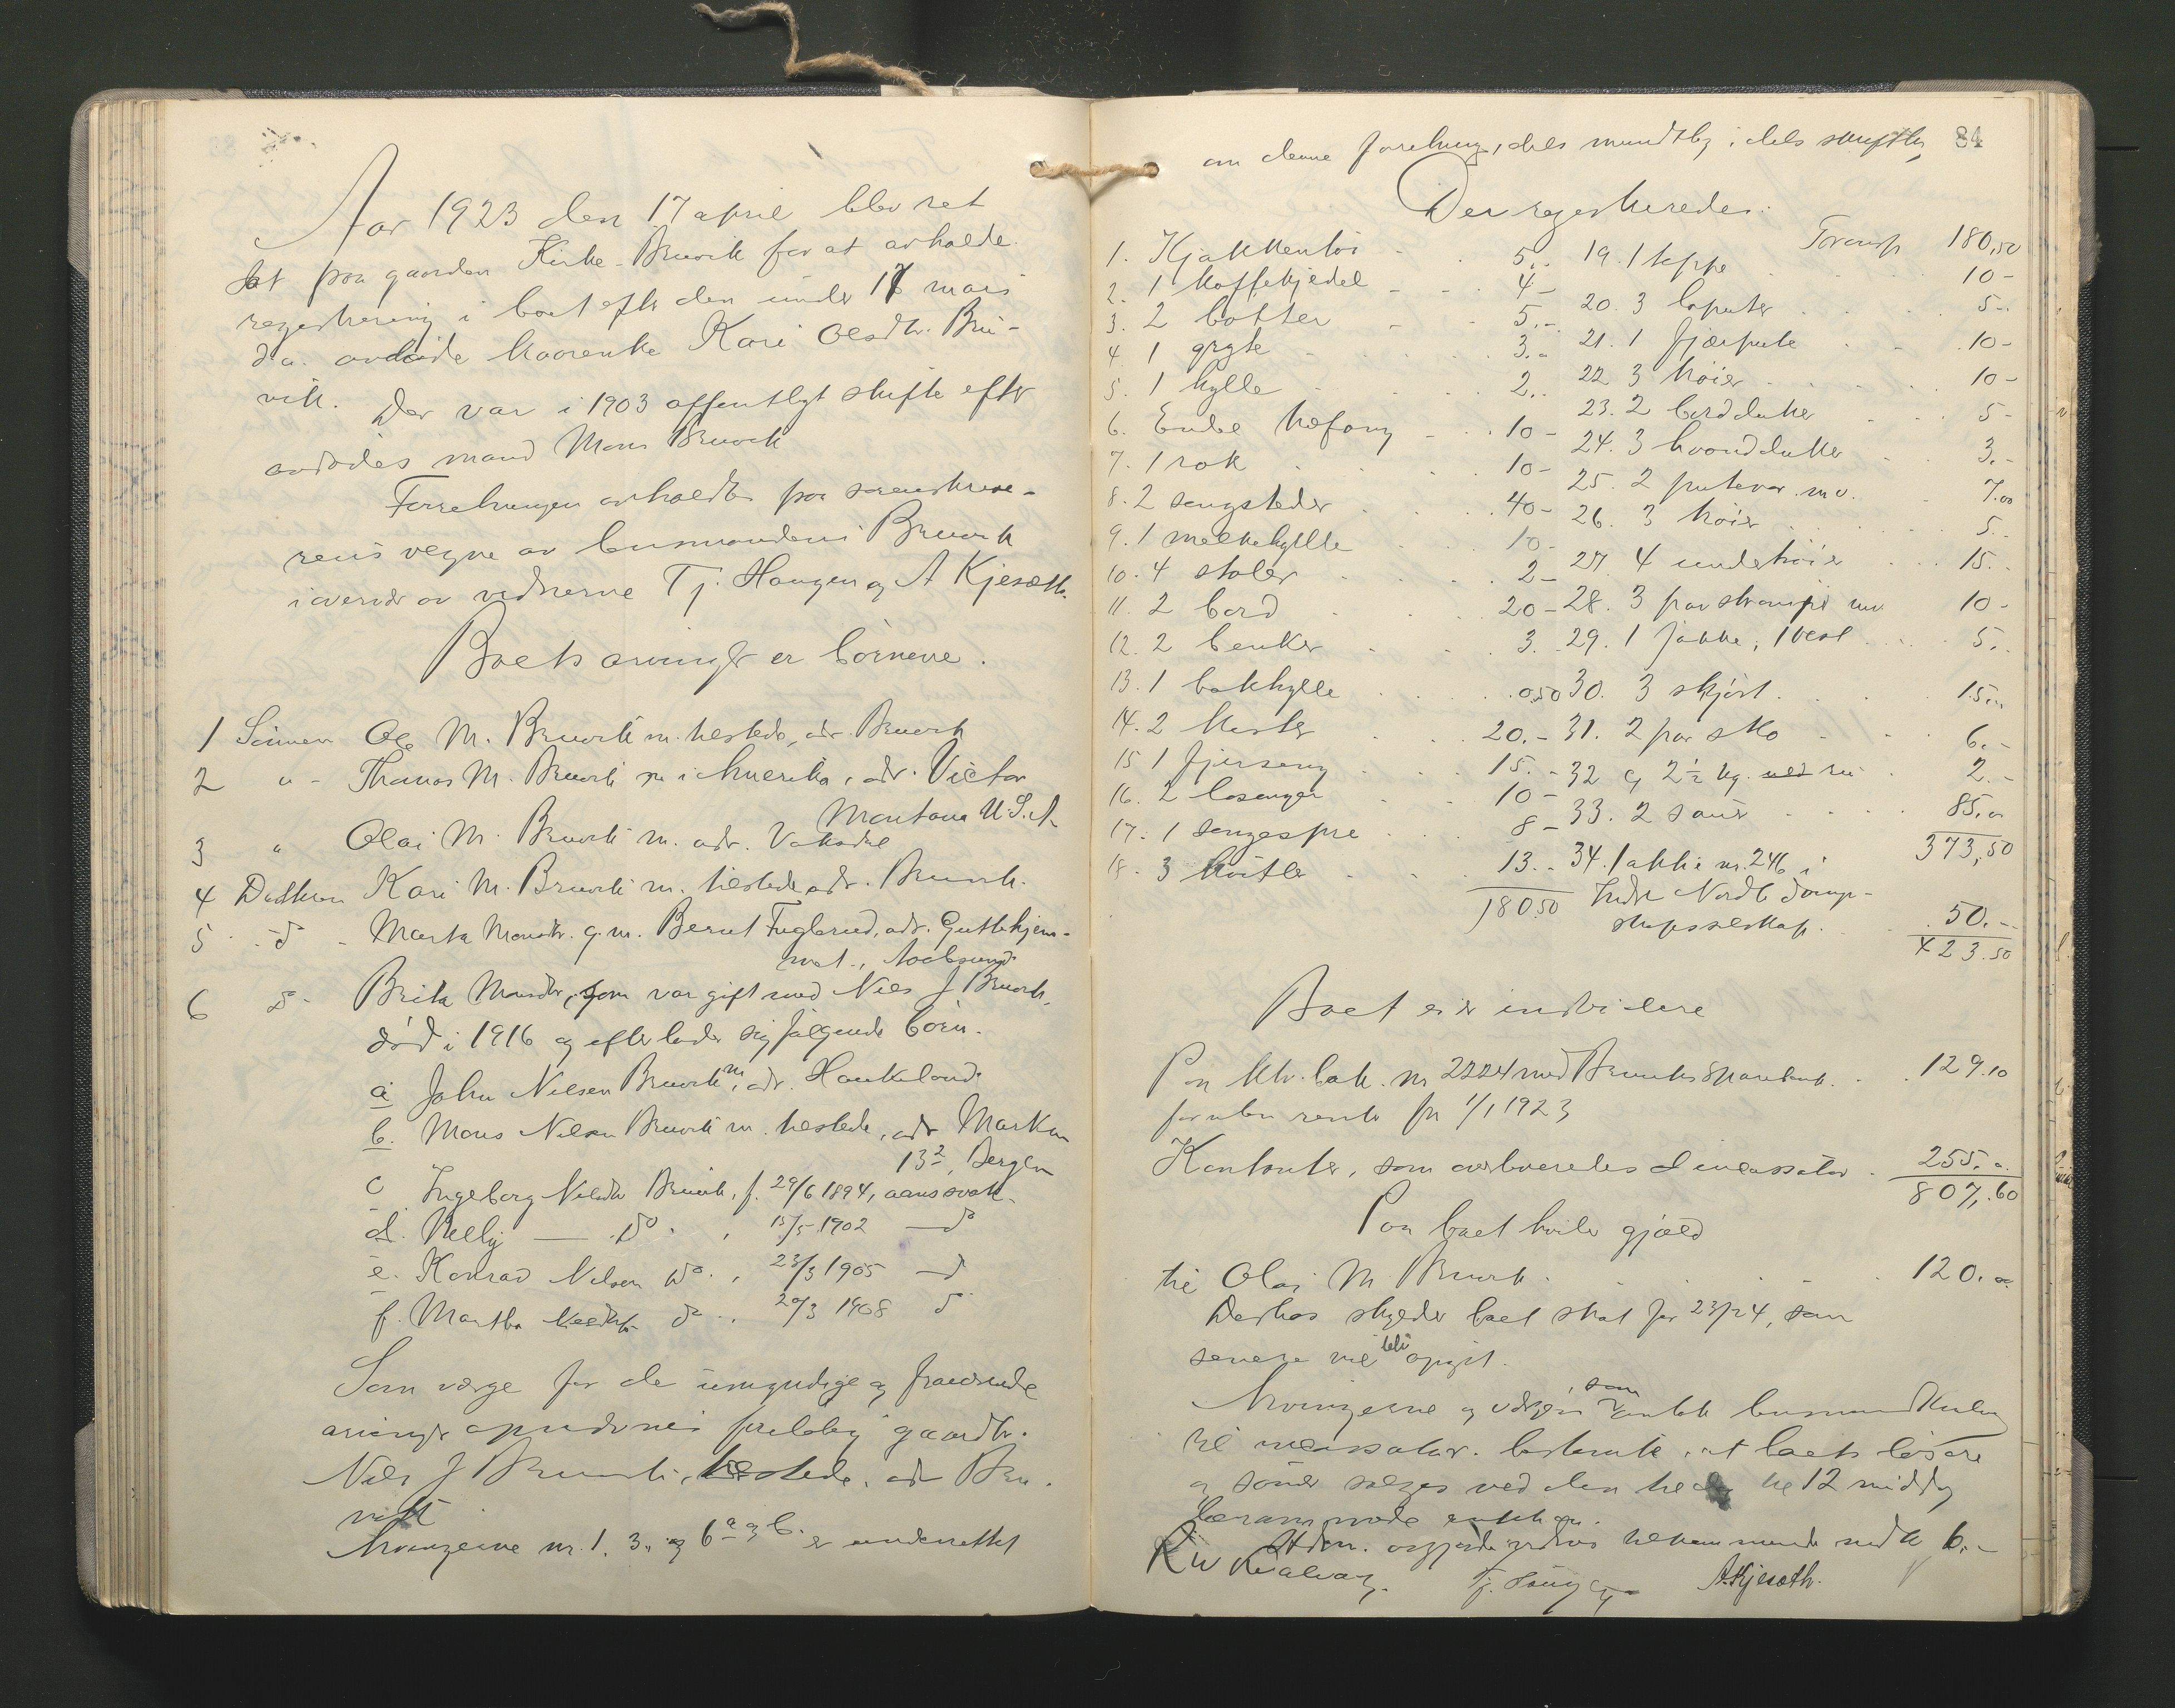 Aar 1923 den 17 april blev ret
sat paa gaarden Kirke-Bruvik for at avholde
registrering i boet efter den under 17 mars
d.a. avdøde kaarenke Kari Olsdtr. Bru-
vik. Der var i 1903 offentligt skifte efter
avdødes mand Mons Bruvik
Forretningen avholdtes paa sorenskrive-
rens vegne av lensmanden i Bruvik
i overvær av vidnerne Tj. Haugen og A Kjesæth.
Boets arvinger er børnene.
1 Sønnen Ole M. Bruvik m. tilstede, adr. Bruvik
2 " - Thomas M. Bruvik m i Amerika, adr. Victor
Montana U.S.A
3 " Olai M. Bruvik m. adr. Vaksdal
4 Datteren Kari M. Bruvik m. tilstede adr. Bruvik.
5 - d - Marta Monsdtr. g.m. Bernt Fuglerud, adr.
6 d - Brita Monsdtr, som var gift med Nils J Bruvik,
død i 1916 og efterlader sig følgende børn.
a John Nilsen Bruvik m, adr. Haukeland
b. Mons Nilsen Bruvik m. tilstede, adr Marken
13 2, Bergen
c Ingeborg Nilsdtr Bruvik, f. 29/6 1894, aanssvak.
d. Nelly — do. , 15/5 1902 — d
e. Konrad Nilsen do. , 23/3 1905 — d
f. Martha Nilsdtr. do. , 20/3 1908 d
Som verge for de umyndige og fraværende
arvinger opnævnes foreløbig gaardbr.
Nils J Bruvik, tilstede, adr Bru-
vik
Arvingerne nr. 1, 3, og 6 a og b. er underrettet
om denne forretning, dels mundtlig, dels skriftlig 84
Der registreredes:
Transp 180,50
1. Kjøkkentøi - . 5.-
2. 1 kaffekjedel - - . 4-
3. 2 bøtter - . 5.-
4 1 gryte . . . . 3.-
5. 1 hylle . . . 2.-
6. Endel 10-
7. 1 rok . . . 10-
8. 2 sengsteder . . . 40-
9. 1 melkehylle . . 10-
10. 4 stoler . . . 2-
11. 2 bord . . . 20-
12. 2 benker . . 3.-
13. 1 bakhylle . . . 0.50
14. 2 kister . . 20.-
15 1 fjørseng . . . 15.-
16. 2 losenger . . 10-
17. 1 sengespre . . 8-
18. 3 kvitler . . . 13.-
180.50
19. 1 teppe . . . 10-
20. 3 loputer . . . 5-.
21. 1 fjærpute . - . 10-
22 3 kjoler . . . . 10-
23. 2 bordduker . 5-
24. 3 haandduker . . 3.-
25. 2 putevar m.v. - 7.00
26. 3 5.-
27 4 . . . 15.-
28. 3 par strømper mv. 10-
29. 1 jakke, 1 vest . . . 5.-
30. 3 skjørt . . . 15.00
31. 2 par sko - . . 6.-
32 2 ½ kg. . 2.-
33. 2 sauer . . . . 85.00
373,50
34. 1 aktie nr. 246 i
Indre Nordh. Damp-
skipsselskap. . . 50.-
423.50
Boet eier indvidere
Paa ktr. bok nr 2224 med Bruviks Sparebank . . 129.10
foruten rente fra 1/1 1923
Kontanter, som overleveredes d incassator . 255.-
807,60
Paa boet hviler gjæld
til Olai M Bruvik . . . . 120.00
Derhos skylder boet skat for 23/24, som
senere vil bli opgit.
Arvingerne og vergen, som lensmand Kvalvaag
til incassator, bestemte, at boets løsøre
og sauer sælges ved den i dag kl 12 middag
berammede auktion.
Rw Kvalvaag. Tj. Haugen A. Kjesæth.